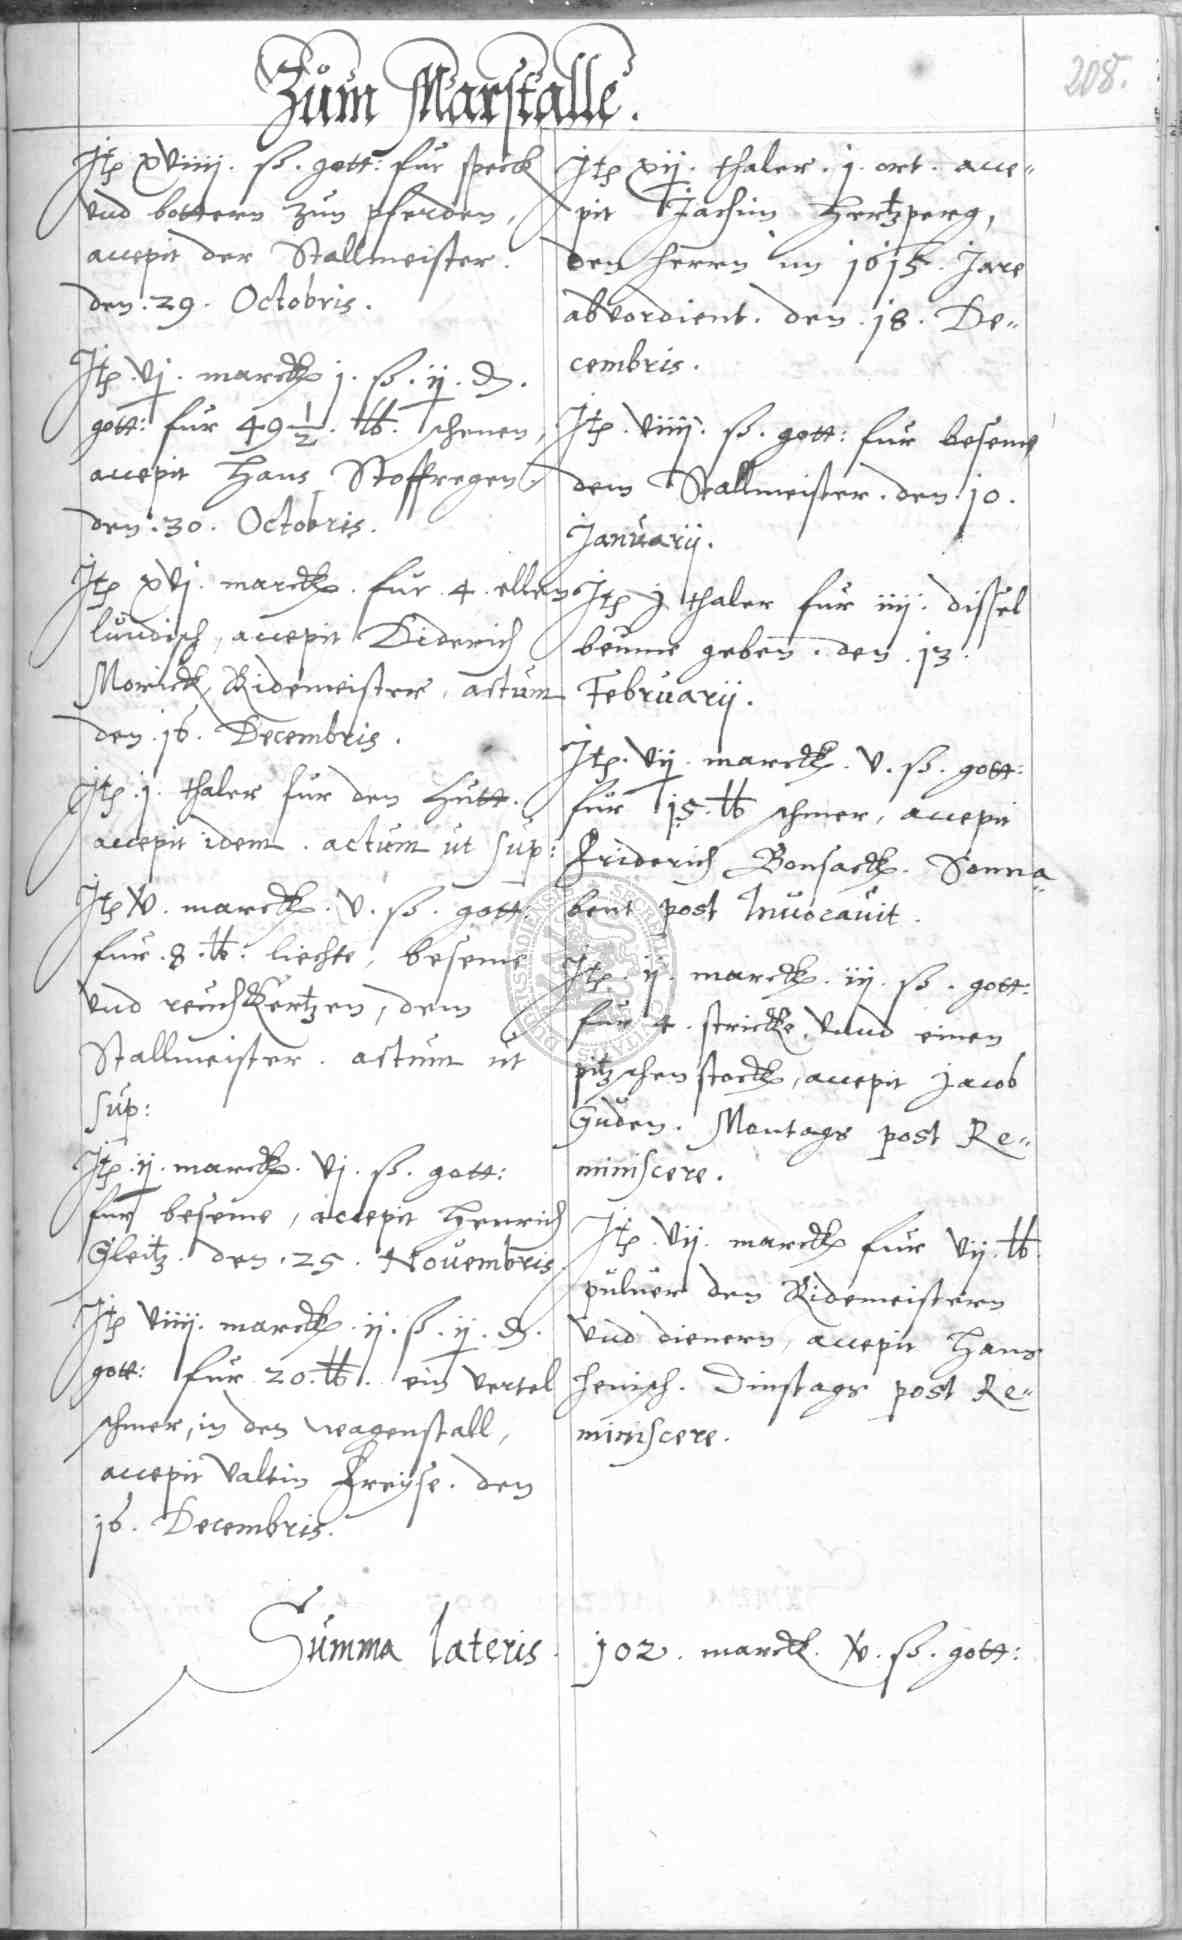 208.
Zum Marstalle.
Itp xviiij. ß. gott: fur speck
vnd bottern zun pferden,
accepit der Stallmeister.
den. 29. Octobris.
Itp. vj. marck j. ß. ij. d.
gott: fur 49 1/2. lb. schenen,
accepit Hans Stoffregen
den. 30. Octobris.
Itp xvj. marck. fur 4. ellen
lundisch, accepit Diderich
Morick, Ridemeister, actum
den. 16. Decembris.
Itp. j. thaler fur den Hutt.
accepit idem. actum ut sup:
Itp. v. marck. v. ß. gott:
fur. 8. lb. liechte, beseme
vnd reuchkertzen, dem
Stallmeister. actum ut
sup:
Itp. ij. marck. vj. ß. gott:
fur beseme, accepit Henrich
Gleitz. den. 25. Nouembris
Itp viiij. marck. ij. ß. ij. d.
gott: fur 20. lb. ein vertel
schmer, in den wagenstall,
accepit Valtin Freyse. den
16. Decembris.
Itp xij. thaler. j. ort. acce„
pit Jachim Hertzperg,
den herrn im 1615. Jare
abvordient. den. 18. De„
cembris.
Itp. viiij. ß. gott: fur beseme
dem Stallmeister. den. 10.
Januarij.
Itp j thaler fur iiij. dissel
beume geben. den. 13.
Februarij.
Itp. vij. marck. v. ß. gott:
fur 15. lb schmer, accepit
Friderich Bonsack. Sonna„
bent post Inuocauit.
Itp. ij. marck. iij. ß. gott:
fur 4. stricke, vnnd einen
pitzschenstock, accepit Jacob
Guden. Montags post Re„
miniscere.
Itp. vij. marck fur vij. lb.
puluer den Ridemeistern
vnd dienern, accepit Hans
Henisch. Dinstags post Re„
miniscere.
Summa lateris. 102. marck. v. ß. gott: